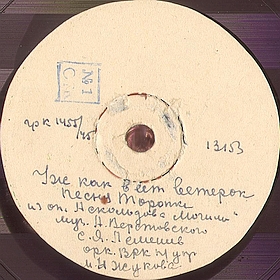 №1
грк 1455/45
13153
Уж как веет ветерок
Песня Торопки
из оп. Аскольдова Могила"
муз. А. Верстовского
с. Я. Лемешев
орк. ВРК п/упр
Н Жукова